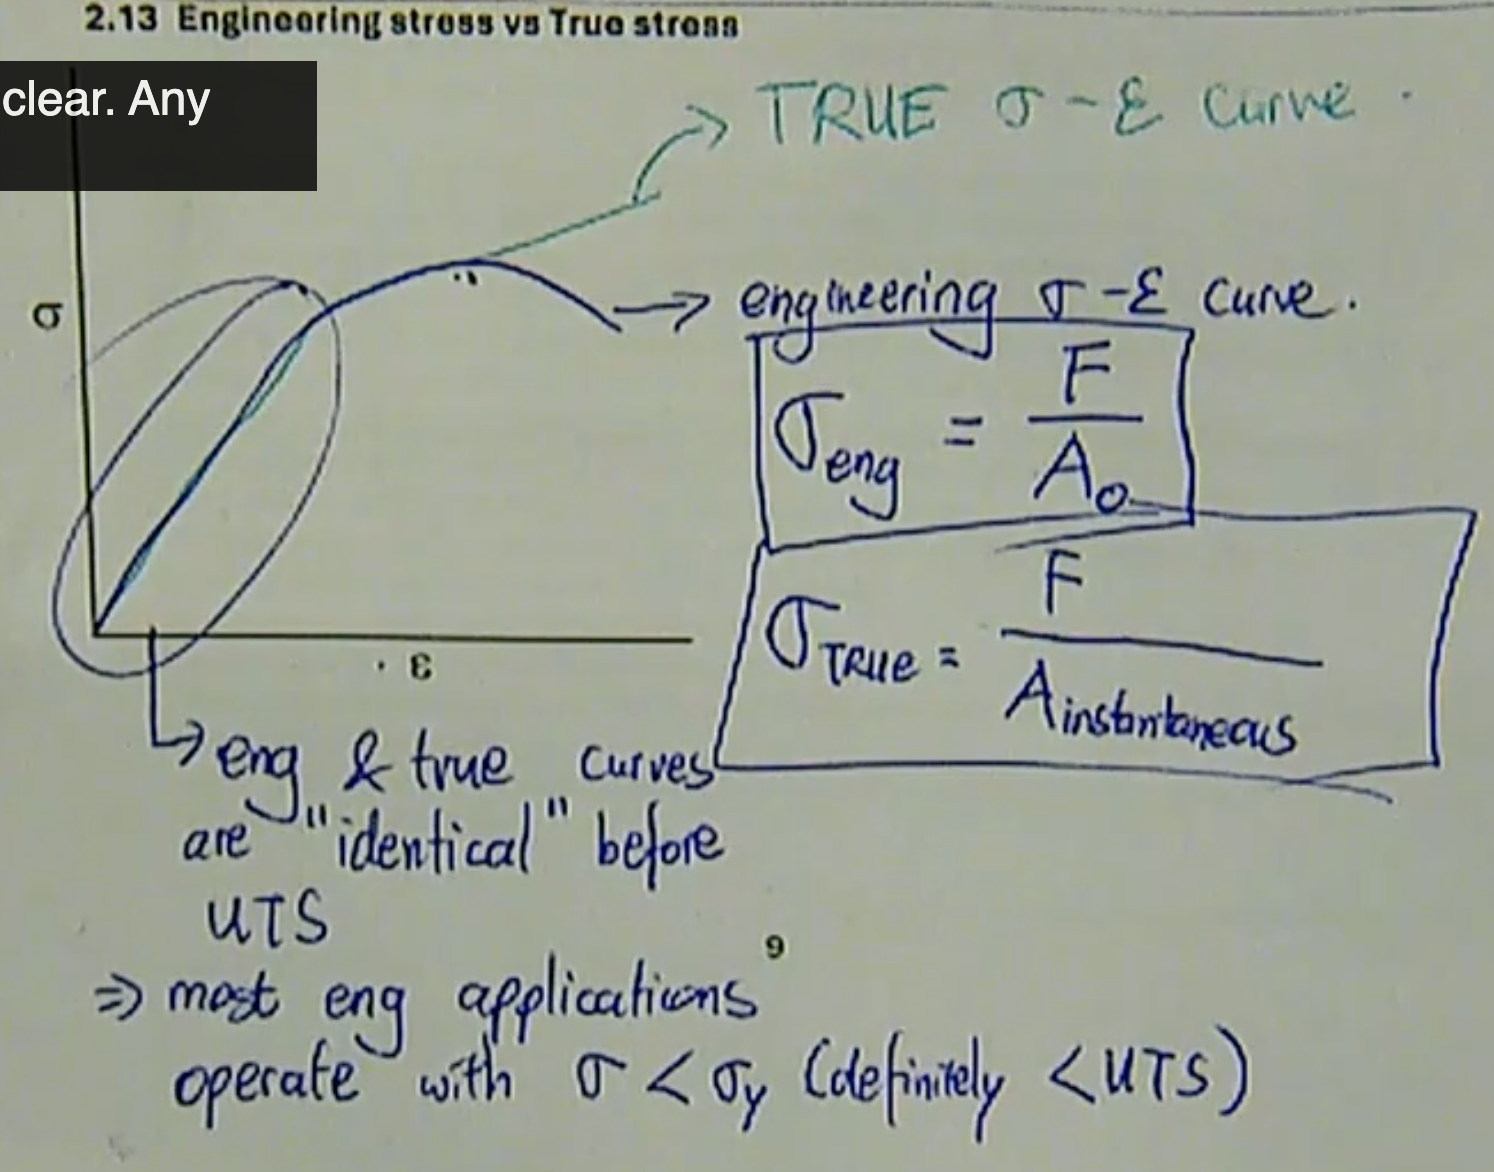 2.13 Engineering stress vs True stress
clear. Any
TRUE σ - ε curve.
σ
engineering σ - ε curve.
σeng = F / A₀
σTRUE = F / Ainstantaneous
ε
eng & true curves
are "identical" before
UTS
9
⇒ most eng applications
operate with σ < σy (definitely < UTS)